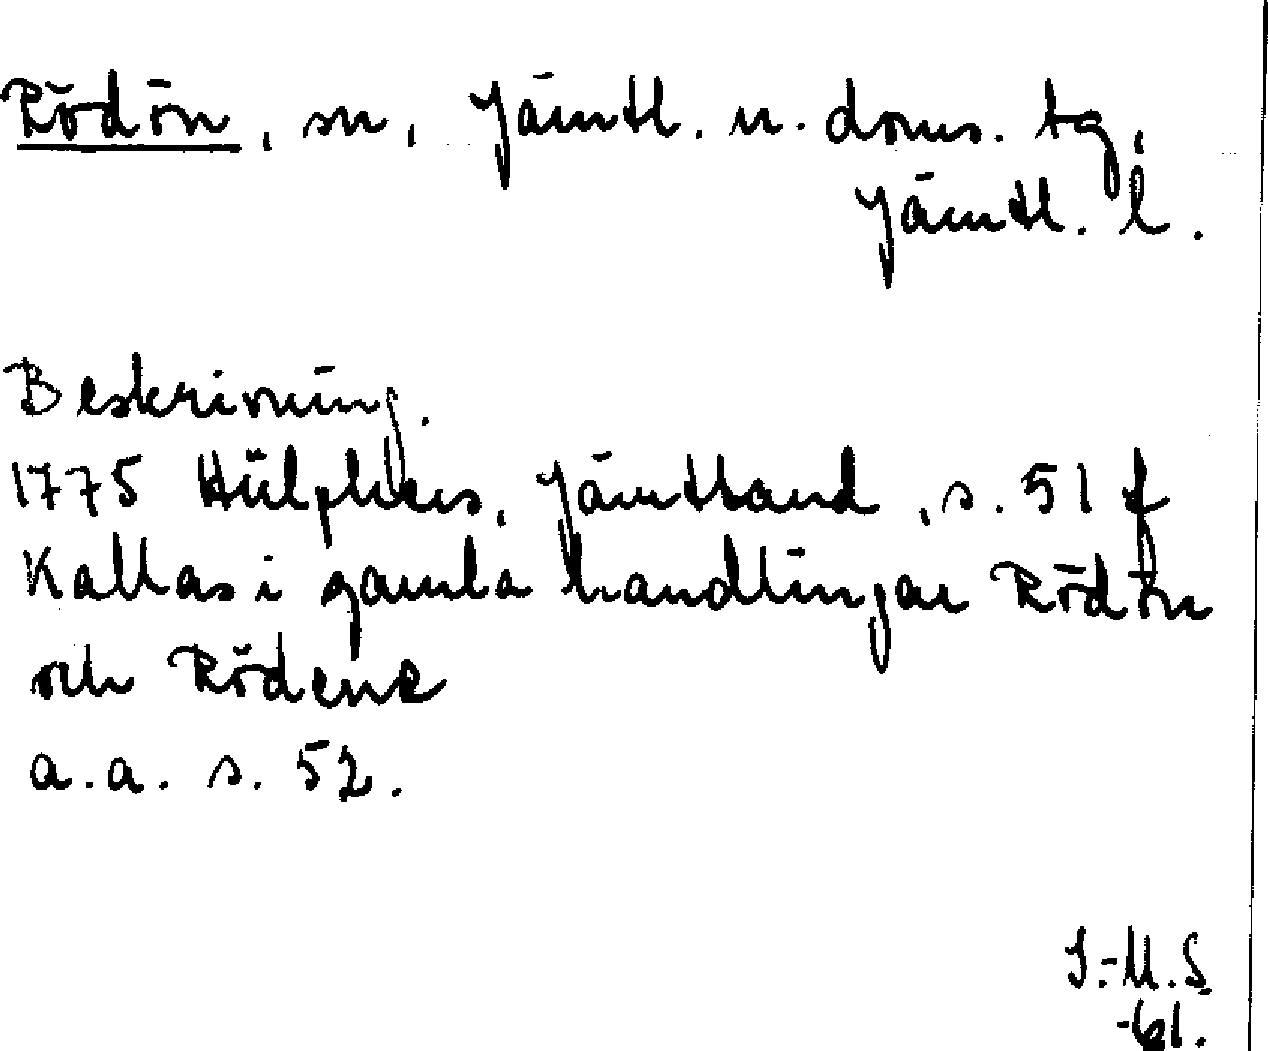 Rödön, sn, Jämtl. n. doms. tg,
Jämtl. l.
Beskrivning.
1775 Hülphers, Jämtland, s. 51 f
Kallas i gamla handlingar Rödön
och Rödene
a.a. s. 52.
I.-M.S.
-61.